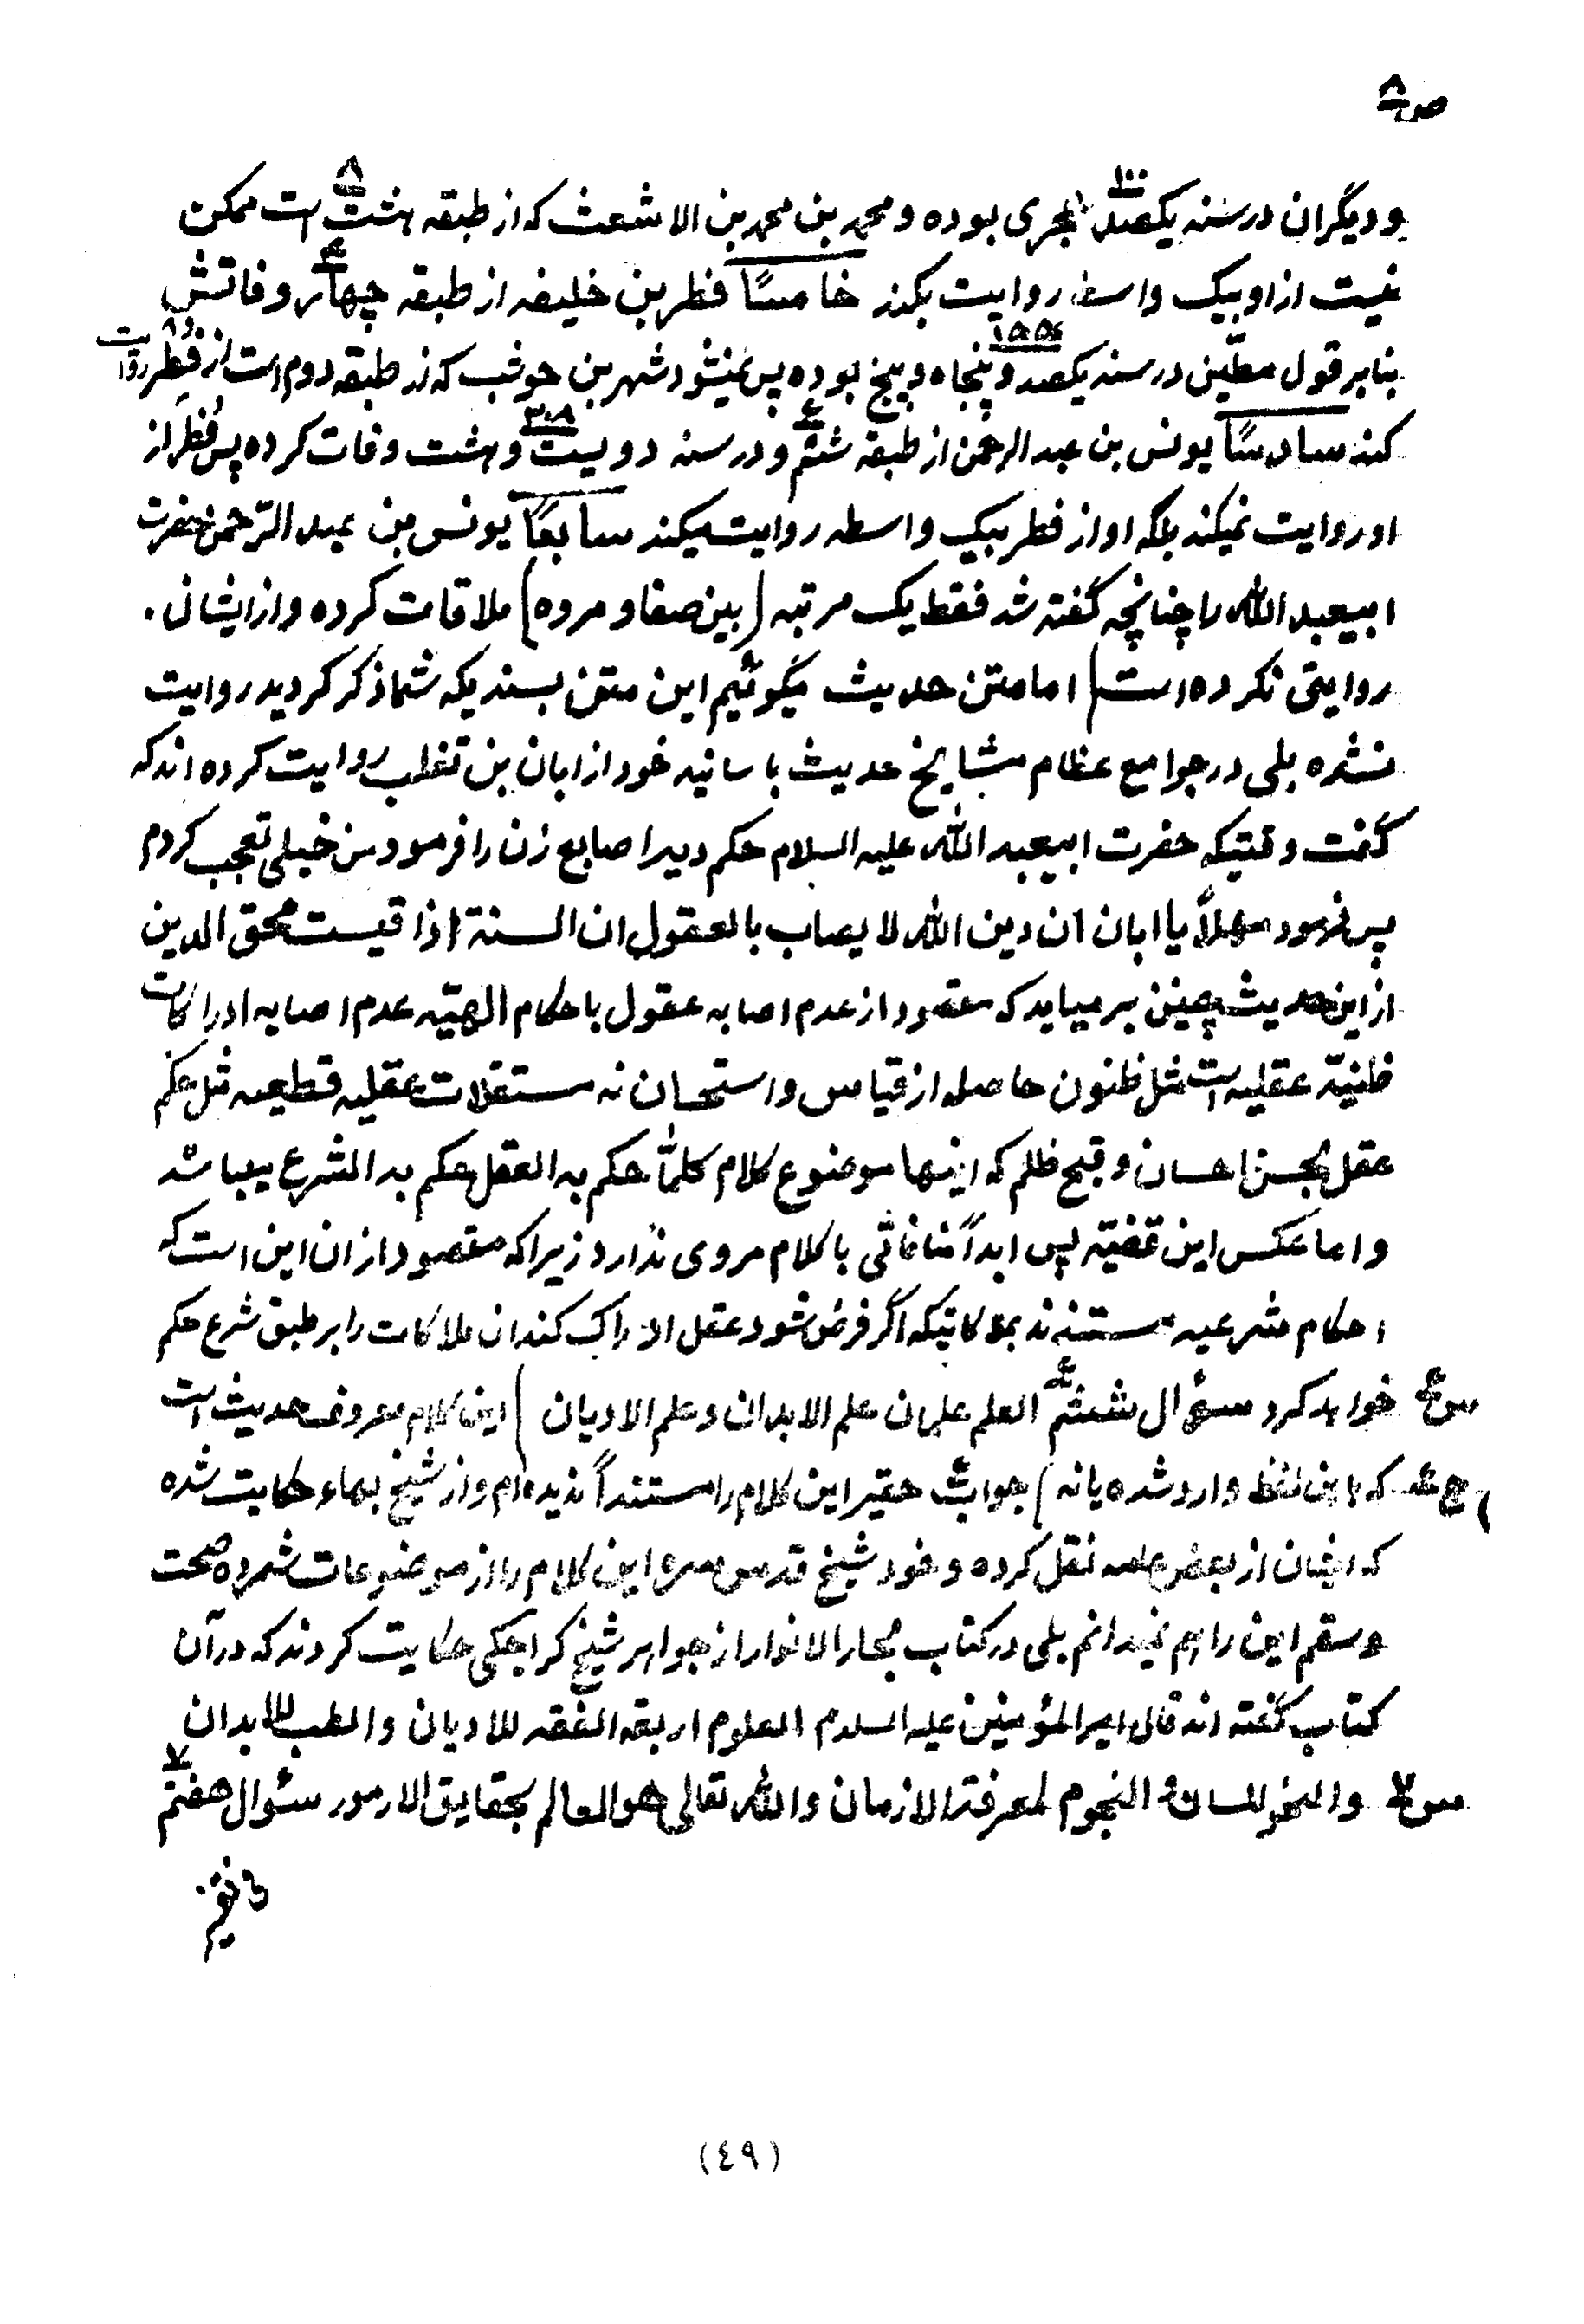 ص۸
و دیگران در سنه یکصد ۱۰۰ هجری بوده و محمد بن محمد بن الاشعث که از طبقه هشت ۸ است ممکن
نیست از او بیک واسطه روایت بکند خامساً فطر بن خلیفه از طبقه چهار ۴ وفاتش
بنا بر قول مطیّن در سنه یکصد و پنجاه و پنج ۱۵۵ بوده پس نمیشود شهر بن حوشب که از طبقه دوم است از فطر روایت
کند سادساً یونس بن عبد الرحمن از طبقه ششم ۶ و در سنه دویست و هشت ۲۰۸ وفات کرده پس فطر از
او روایت نمیکند بلکه او از فطر بیک واسطه روایت میکند سابعاً یونس بن عبد الرّحمن حضرت
ابیعبد الله را چنانچه گفته شد فقط یک مرتبه (بین صفا و مروه) ملاقات کرده و از ایشان .
روایتی نکرده است) اما متن حدیث میگوئیم این متن بسندیکه شما ذکر کردید روایت
نشده بلی در جوامع عظام مشایخ حدیث با سانید خود از ابان بن تغلب روایت کرده اند که
گفت وقتیکه حضرت ابیعبد الله علیه السلام حکم دیه اصابع زن را فرمود من خیلی تعجب کردم
پس فرمود مهلاً یا ابان ان دین الله لا یصاب بالعقول ان السنة اذا قیست محق الدین
از این حدیث چنین بر میاید که مقصود از عدم اصابه عقول باحکام الهیّه عدم اصابه ادراکات
ظنیّه عقلیه است مثل ظنون حاصله از قیاس و استحسان نه مستقلات عقلیه قطعیه مثل حکم
عقل بحسن احسان و قبح ظلم که اینها موضوع کلام کلمّا حکم به العقل حکم به الشرع میباشد
و اما عکس این قضیّه پس ابداً منافاتی با کلام مروی ندارد زیرا که مقصود از ان این است که
احکام شرعیه مستندند بملاکاتیکه اگر فرض شود عقل ادراک کند ان ملاکات را بر طبق شرع حکم
س۶ خواهد کرد سؤال ششم ۶ العلم علمان علم الابدان و علم الادیان ) این کلام معروف حدیث است
) ج۶ که باین لفظ وارد شده یا نه ) جواب حقیر این کلام را مستنداً ندیده ام و از شیخ بهاء حکایت شده
که ایشان از بعض عامه نقل کرده و خود شیخ قدس سره این کلام را از موضوعات شمرده صحت
و سقم این را هم نمیدانم بلی در کتاب بحار الانوار از جواهر شیخ کراجکی حکایت کردند که در آن
کتاب گفته اند قال امیر المؤمنین علیه السلام العلوم اربعة الفقه للادیان والطب للابدان
س۷ والنحو للسان والنجوم لمعرفة الازمان والله تعالی هو العالم بحقایق الامور سؤال هفتم ۷
(٤٩)